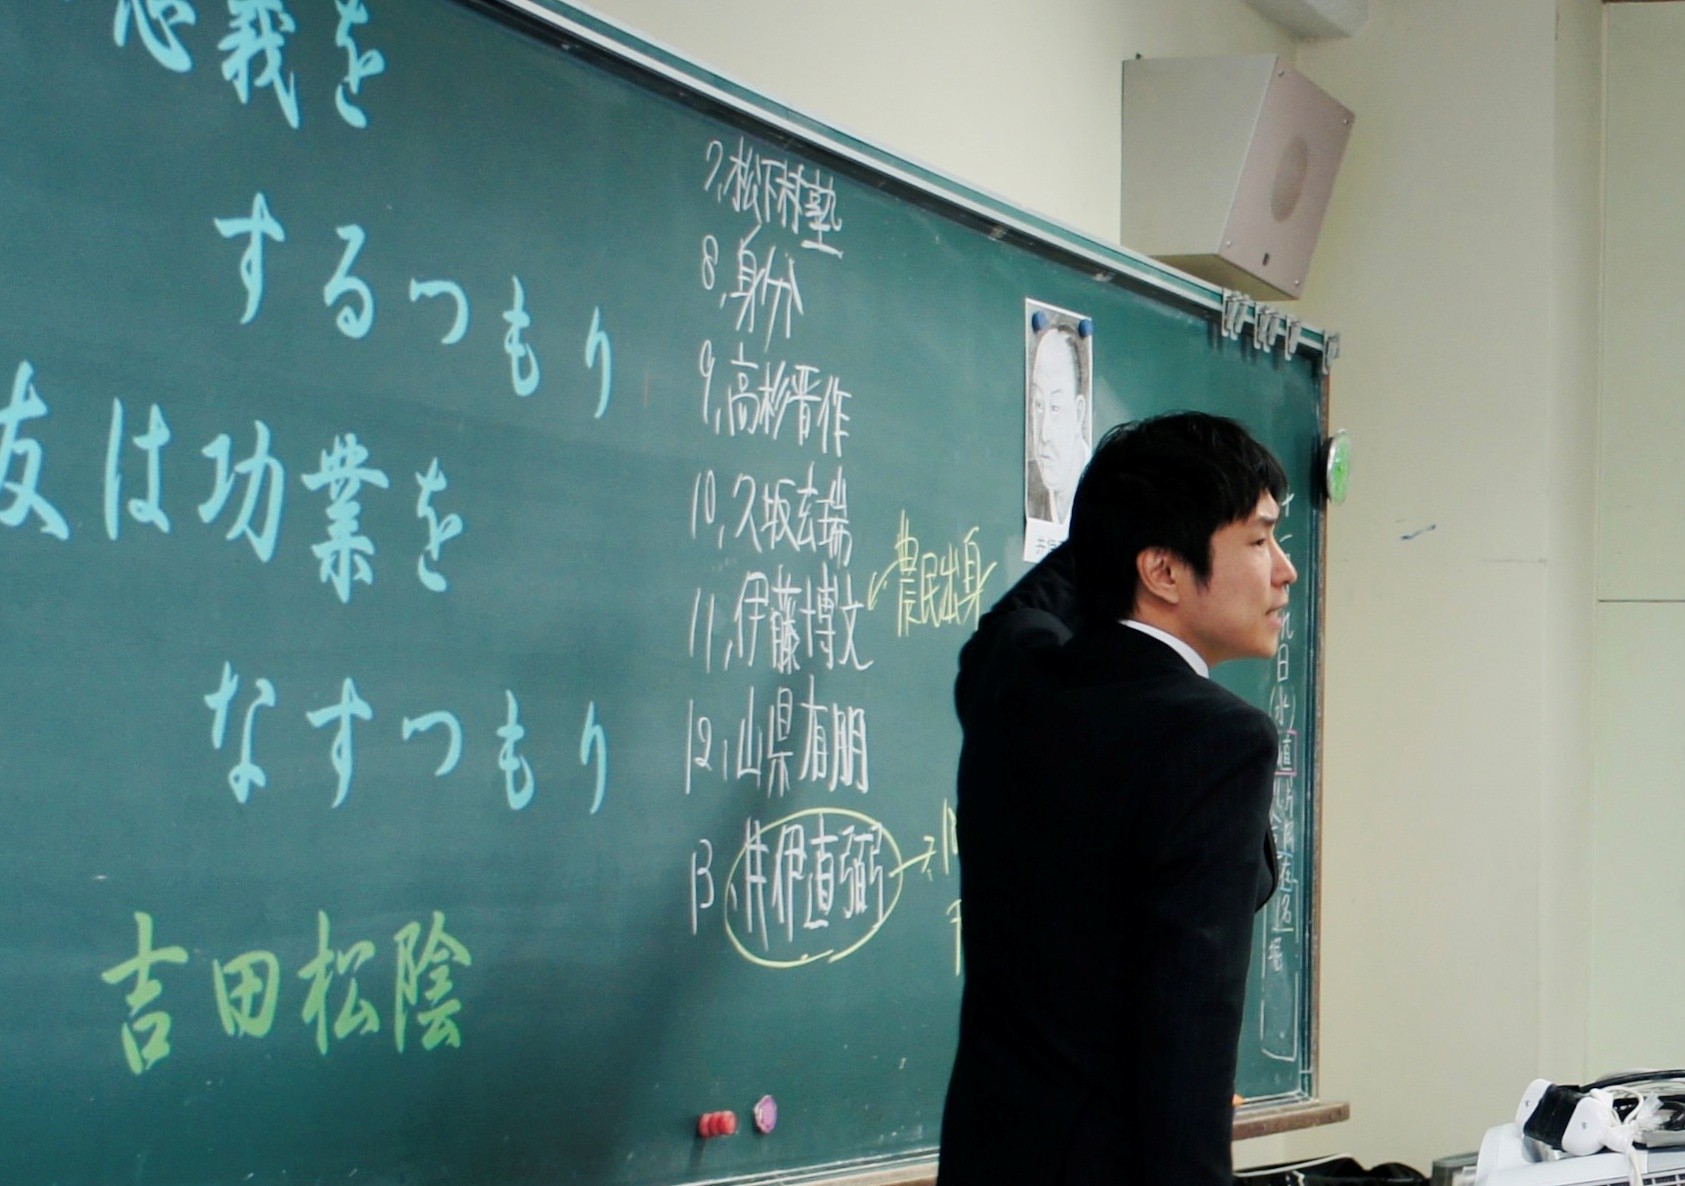 忠義を
するつもり
友は功業を
なすつもり
吉田松陰
7.松下村塾
8.身分
9.高杉晋作
10.久坂玄瑞
11.伊藤博文
農民出身
12.山県有朋
13.井伊直弼
九日(水)